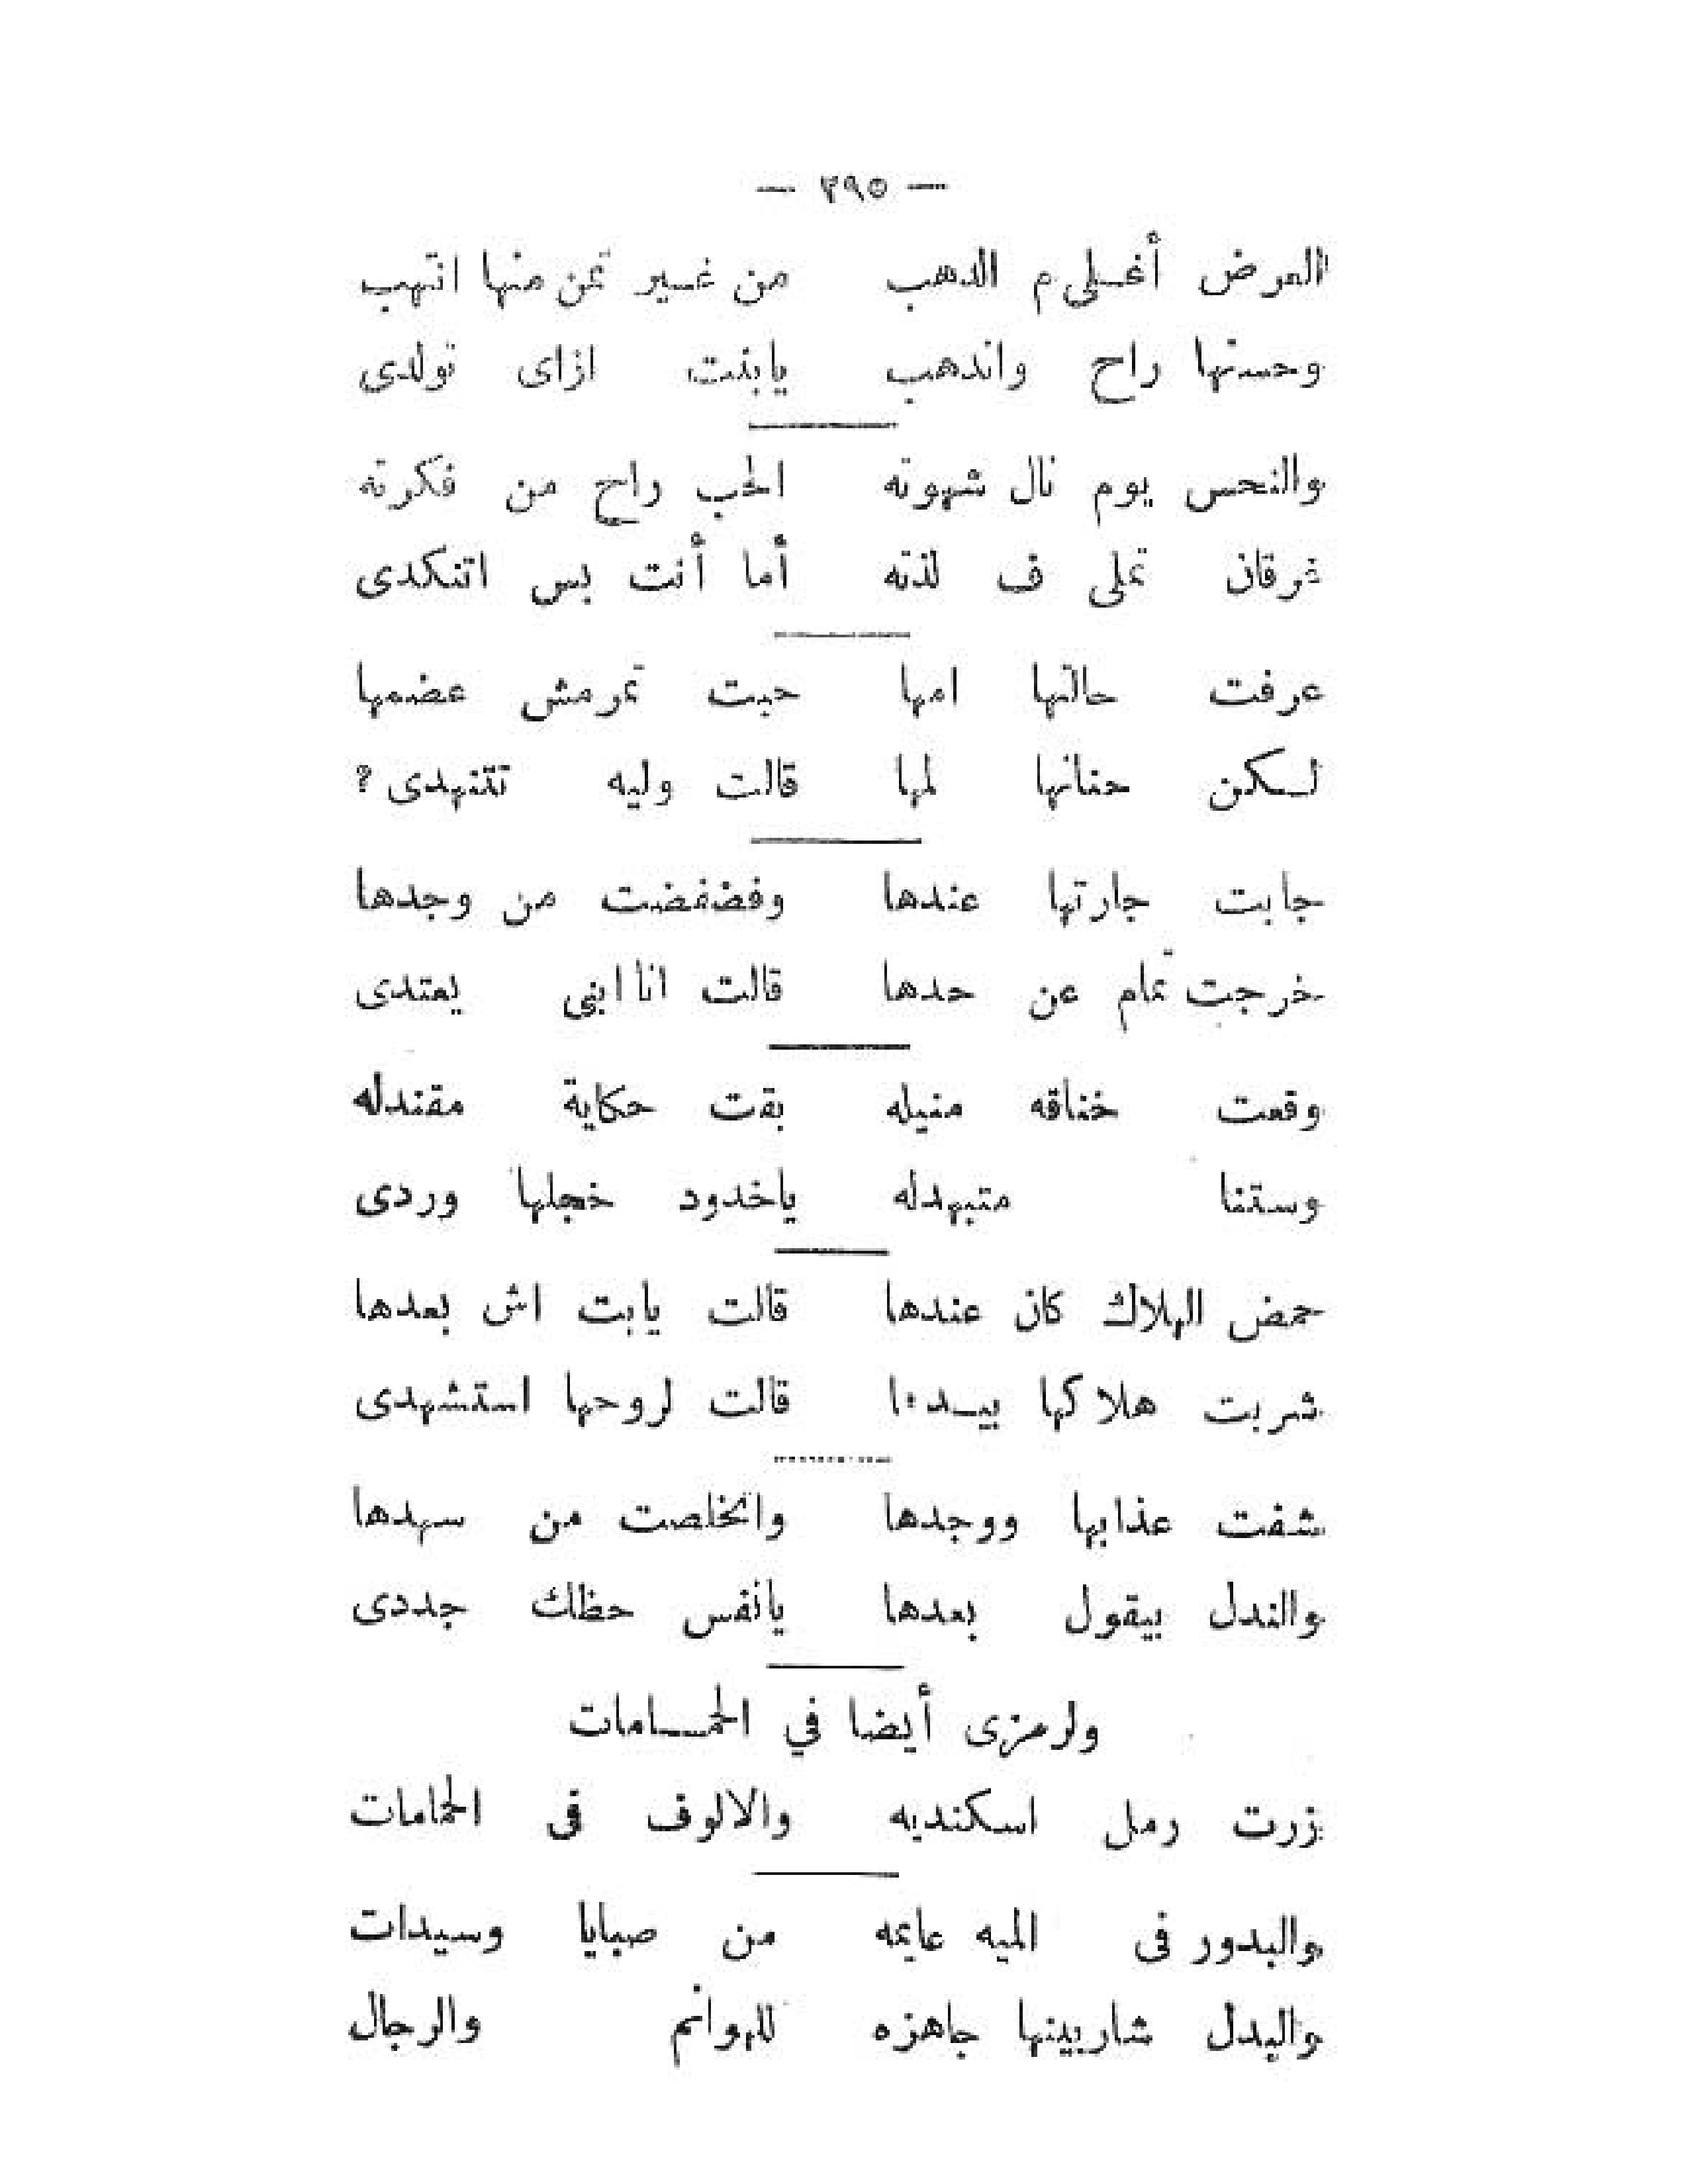 — ٣٩٥ —
العرض أغلى م الدهب من غير تمن منها انتهب
وحسنها راح واندهب يابنت ازاى تولدى
والنحس يوم نال شهوته الحب راح من فكرته
غرقان تملى ف لذته أما أنت بس اتنكدى
عرفت حالتها امها حبت تمرمش عضمها
لكن حنانها لمها قالت وليه تتنهدى ؟
جابت جارتها عندها وفضفضت من وجدها
خرجت تمام عن حدها قالت انا ابنى يعتدى
وقعت خناقه منيله بقت حكاية مقندله
وستنا متبهدله ياخدود خجلها وردى
حمض الهلاك كان عندها قالت يابت اش بعدها
شربت هلاكها بيدها قالت لروحها استشهدى
شفت عذابها ووجدها واتخلصت من سهدها
والندل بيقول بعدها يانفس حظك جددى
ولرمزى أيضا في الحمامات
زرت رمل اسكنديه والالوف فى الحمامات
والبدور فى الميه عايمه من صبايا وسيدات
والبدل شاريينها جاهزه للهوانم والرجال